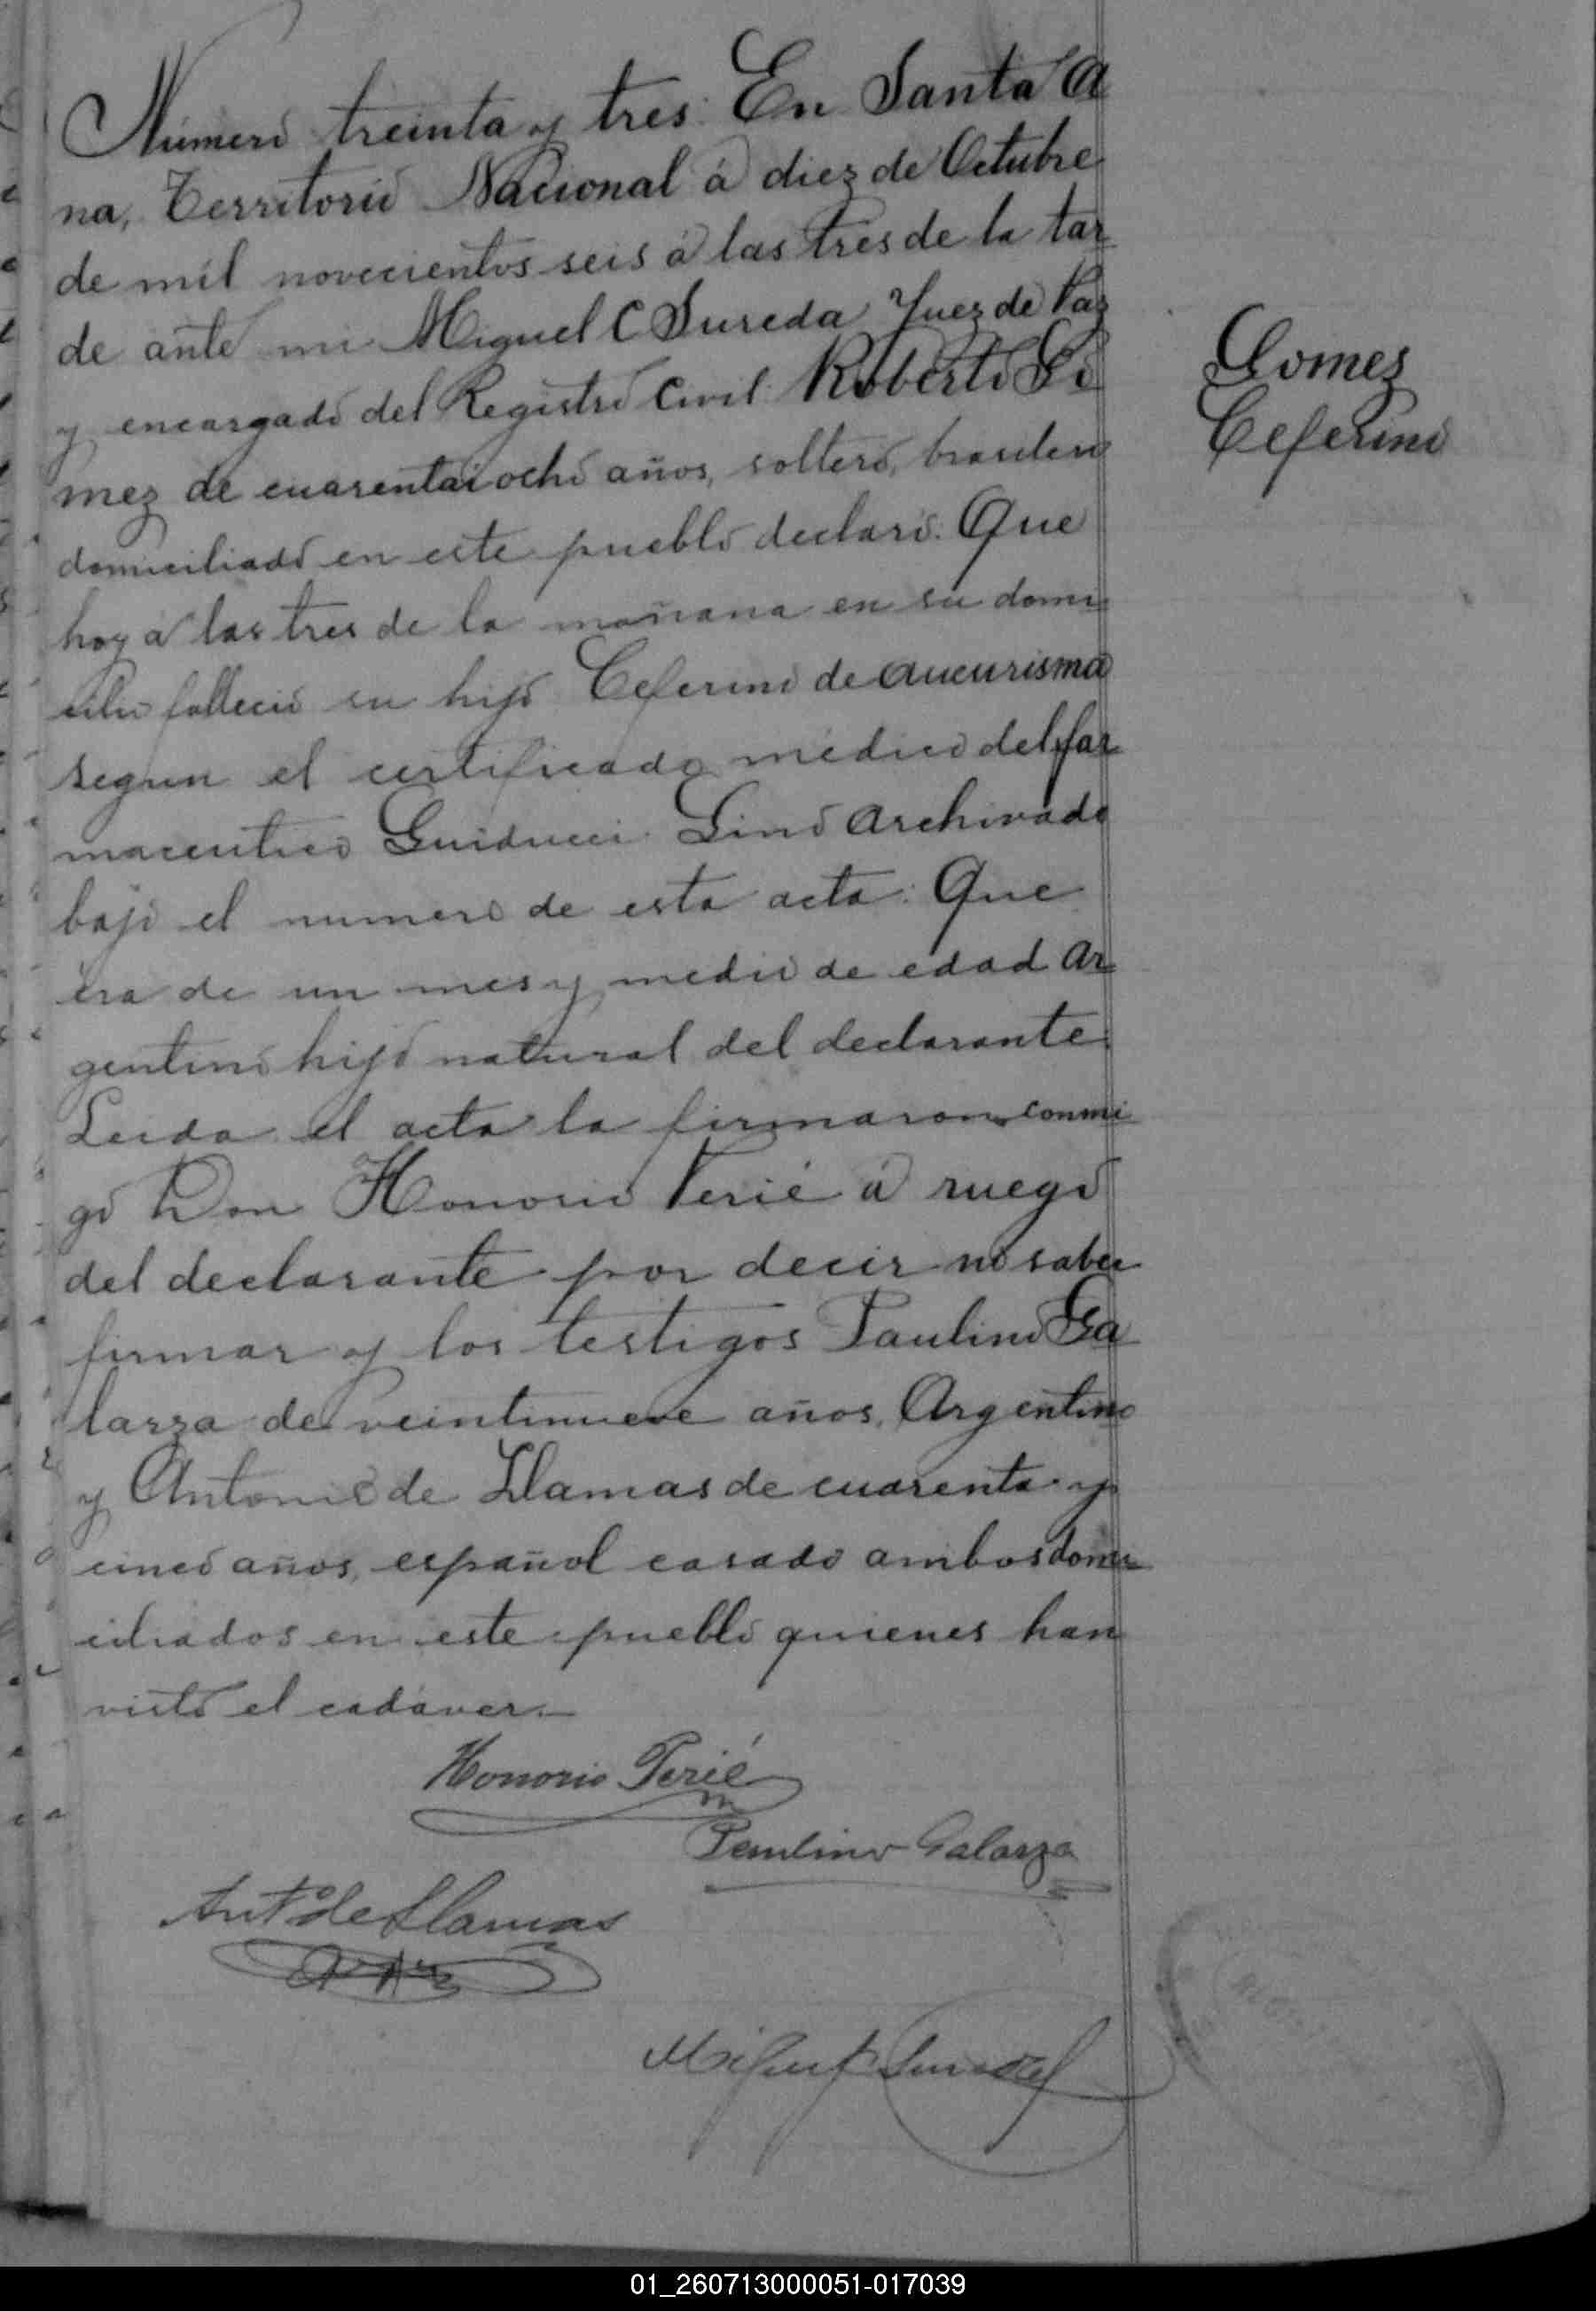 Número treinta y tres. En Santa A
na, Territorio Nacional á diez de Octubre
de mil novecientos seis á las tres de la tar
de ante mi Miguel C Sureda Juez de Paz
y encargado del Registro Civil Roberto Go
mez de cuarentaiocho años, soltero, brasilero
domiciliado en este pueblo declaró: Que
hoy á las tres de la mañana en su domi
cilio falleció su hijo Ceferino de aneurisma
segun el certificado médico del far
maceutico Guiducci Lino archivado
bajo el numero de esta acta: Que
era de un mes y medio de edad Ar
gentino hijo natural del declarante
Leida el acta la firmaron conmi
go Don Honorio Perié á ruego
del declarante por decir no saber
firmar y los testigos Paulino Ga
larza de veintinueve años, Argentino
y Antonio de Llamas de cuarenta y
cinco años, español casado ambos domi
ciliados en este pueblo quienes han
visto el cadáver.
Gomez
Ceferino
Honorio Perié
Paulino Galarza
Ant.º de Llamas
Miguel C Sureda
01_260713000051-017039